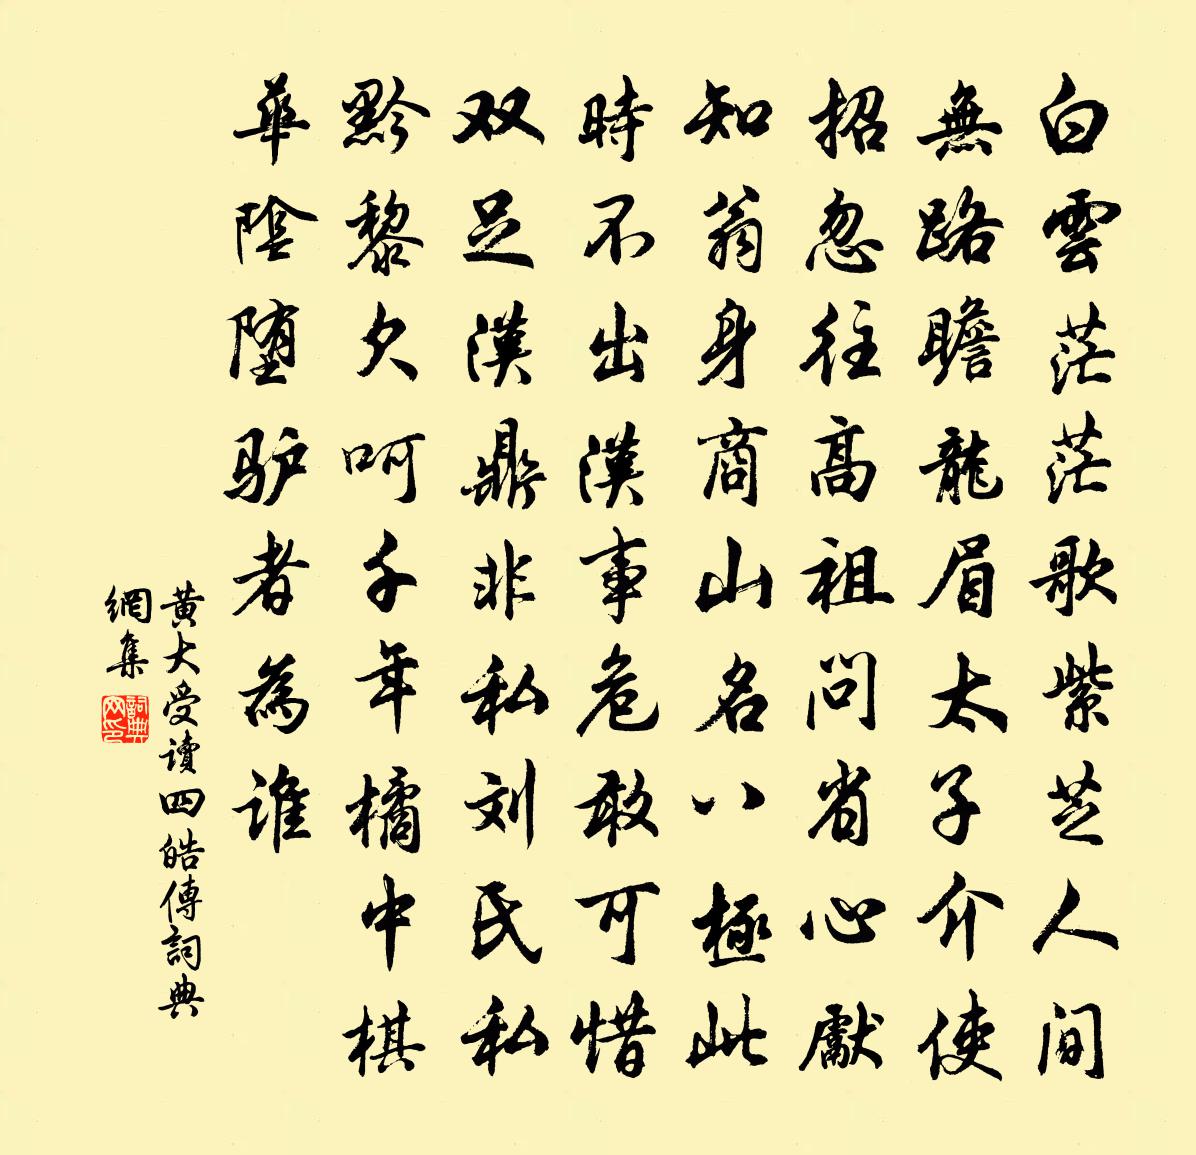 白雲茫茫歌紫芝人间
無路瞻龍眉太子介使
招忽往高祖问省心獻
知翁身商山名八極此
時不出漢事危敢可惜
双足漢鼎非私刘氏私
黔黎久呵千年橘中棋
華陰堕驴者為谁
黄大受讀四皓傳詞典
網集
詞典
网印